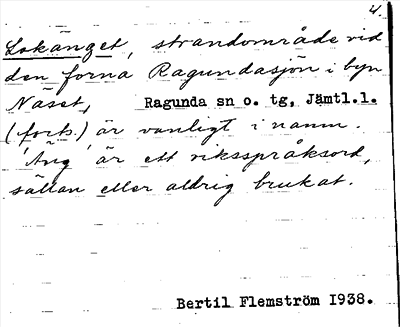 4.
Lokänget, strandområde vid
den forna Ragundasjön i byn
Näset, Ragunda sn o. tg, Jämtl.l.
(forts.) är vanligt i namn.
'Äng' är ett riksspråksord,
sällan eller aldrig brukat.
Bertil Flemström 1938.